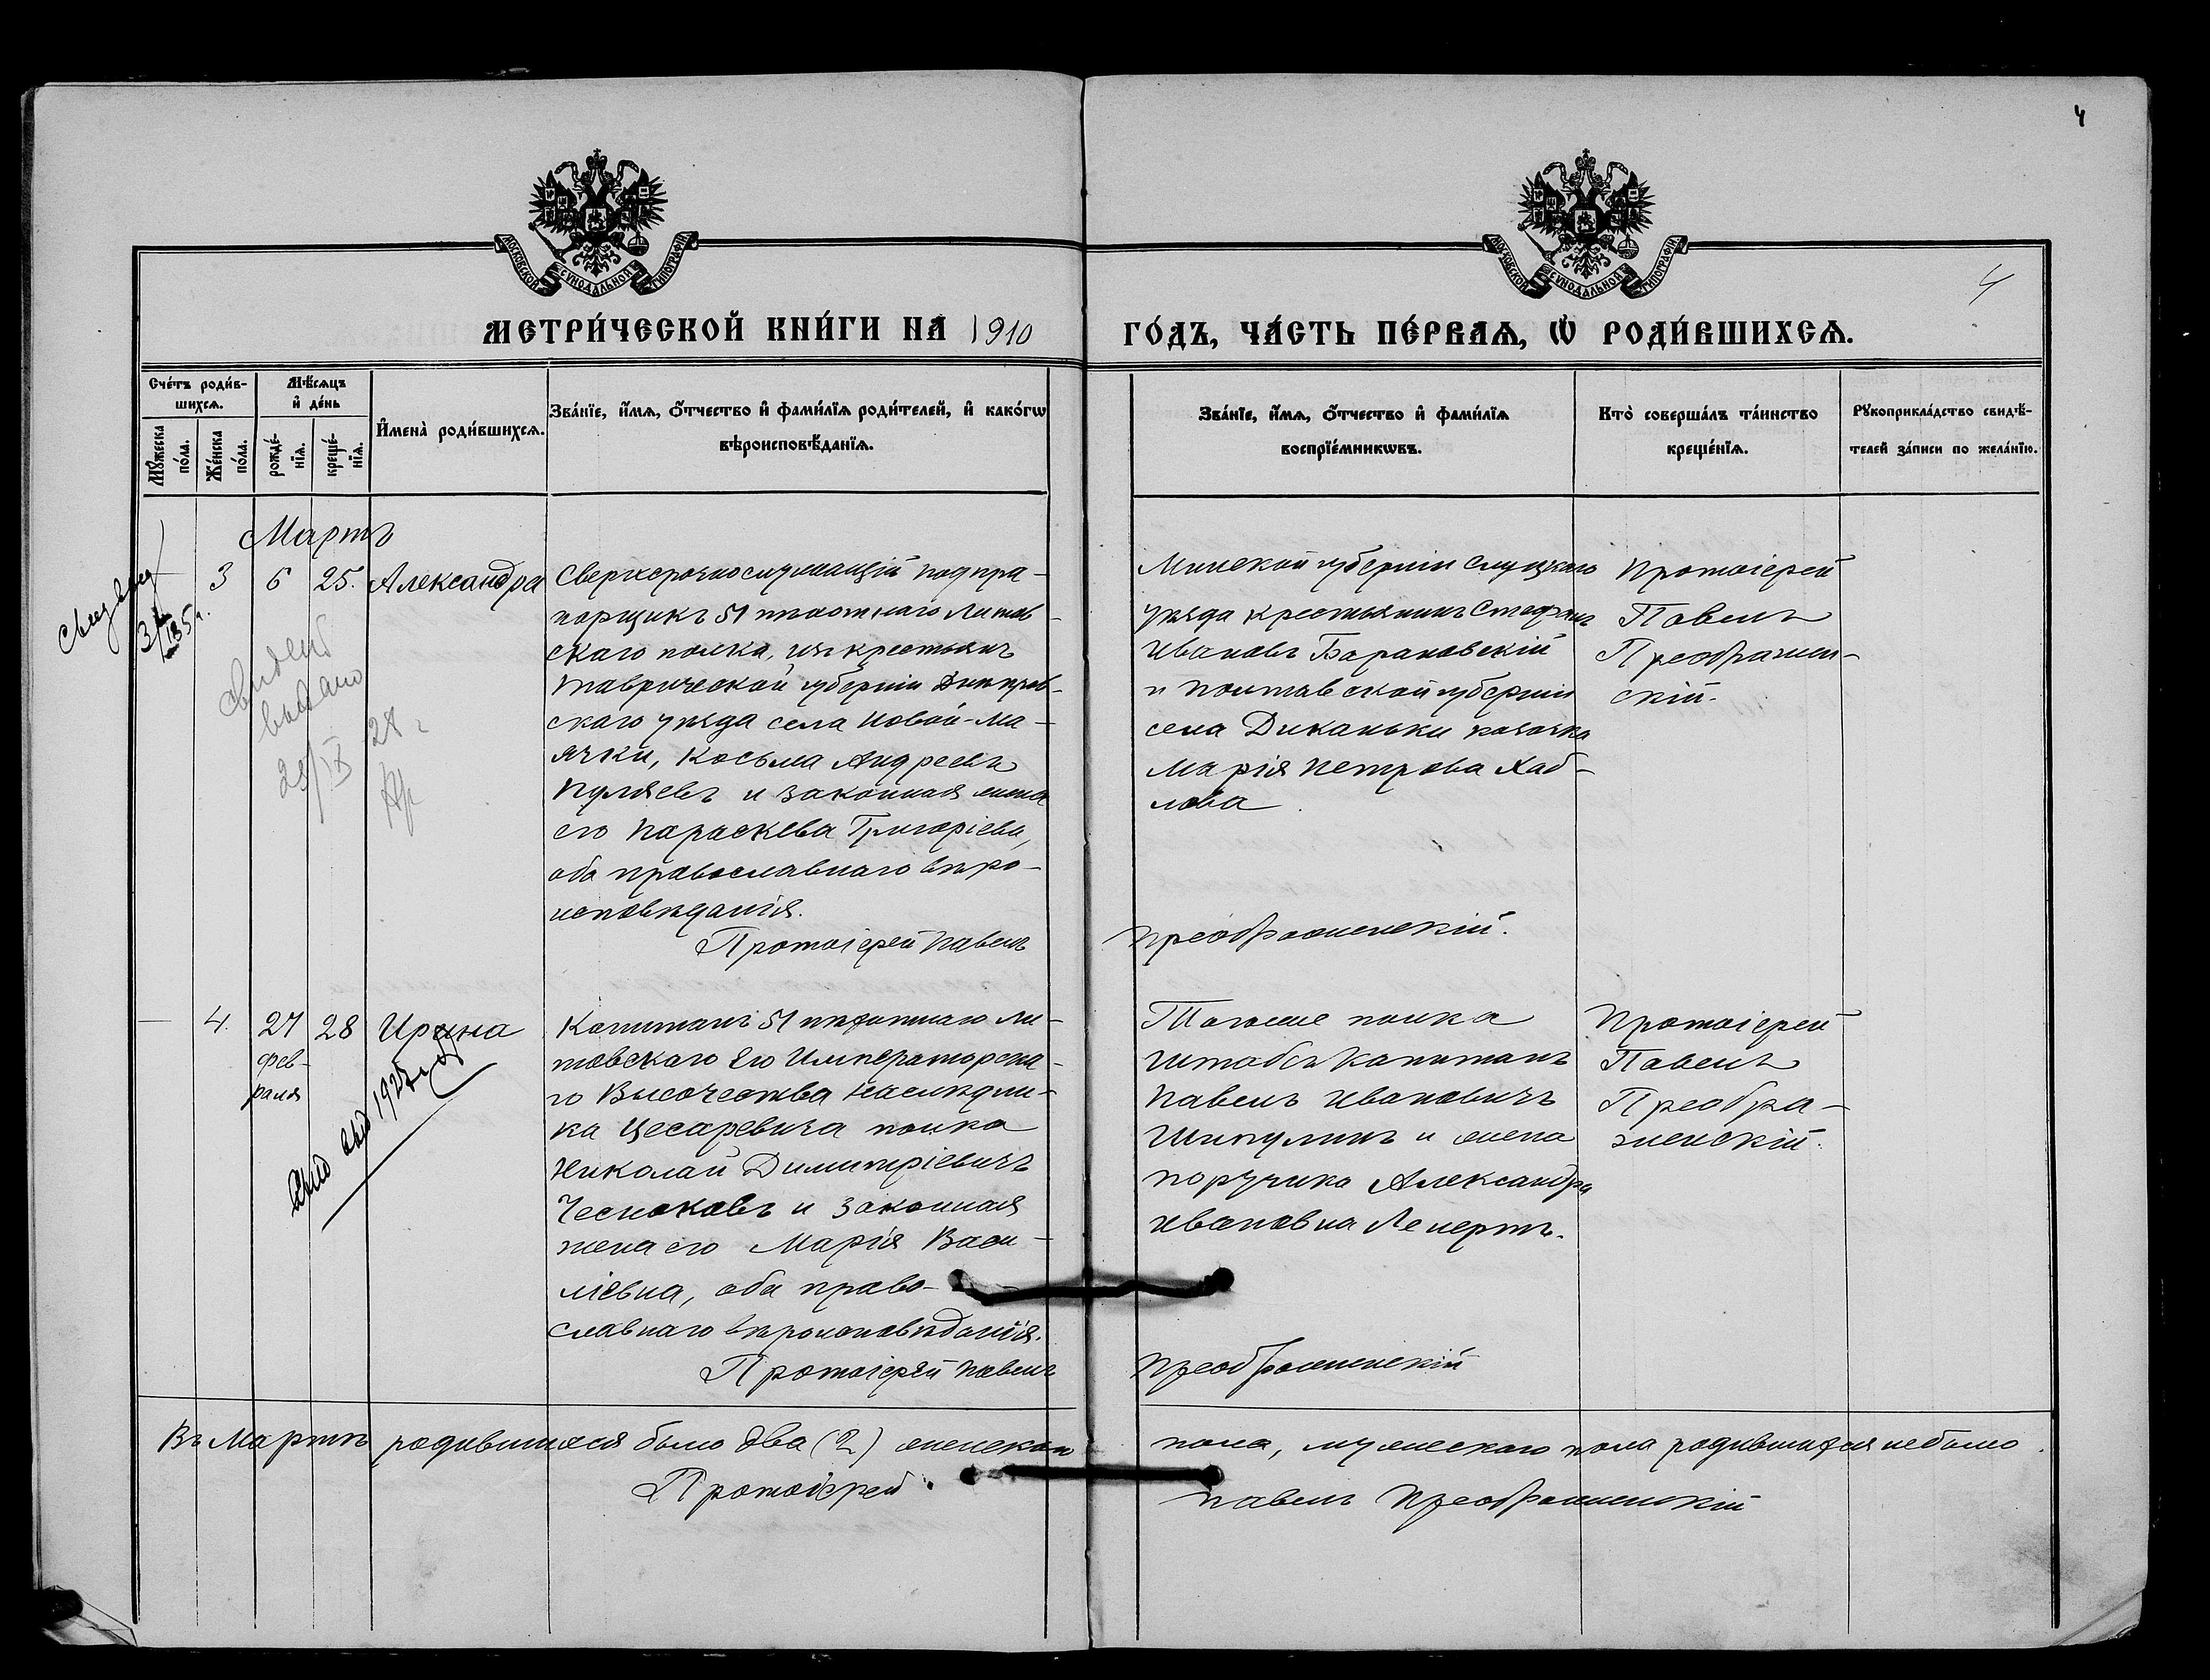 4
МОСКОВСКОЙ СУНОДАЛЬНОЙ ТИПОГРАФІИ
МОСКОВСКОЙ СУНОДАЛЬНОЙ ТИПОГРАФІИ
4
МЕТРИ́ЧЕСКОЙ КНИ́ГИ НА 1910
ГО́ДЪ, ЧА́СТЬ ПЕ́РВАѦ, Ѡ҆ РОДИ́ВШИХСѦ.
Сче́тъ роди́в-
шихсѧ.
Мꙋ́жеска по́ла.
Же́нска по́ла.
Мѣ́сѧцъ
и҆ де́нь
рожде́-
нїѧ.
креще́-
нїѧ.
И҆мена̀ роди́вшихсѧ.
Зва́нїе, и҆́мѧ, ѻ҆́тчество и҆ фами́лїѧ роди́телей, и҆ како́гѡ
вѣроисповѣ́данїѧ.
Зва́нїе, и҆́мѧ, ѻ҆́тчество и҆ фами́лїѧ
воспрїе́мникѡвъ.
Кто̀ соверша́лъ та́инство
креще́нїѧ.
Рꙋкоприкла́дство свидѣ́-
телей за́писи по жела́нїю.
Мартъ
3 6 25. Александра
Сверхсрочнослужащій подпра-
порщикъ 51 пѣхотнаго Литов-
скаго полка, изъ крестьянъ
Таврической губерніи Днѣпров-
скаго уѣзда села Новой-Ма-
ячки, Косьма Андреевъ
Пуляевъ и законная жена
его Параскева Григоріева,
оба православнаго вѣро-
исповѣданія.
Протоіерей Павелъ
Минской губерніи Слуцкаго
уѣзда крестьянинъ Стефанъ
Ивановъ Барановскій
и Полтавской губерніи
села Диканьки казачка
Марія Петрова Хаб-
лова.
Преображенскій.
Протоіерей
Павелъ
Преображен-
скій.
выдано
28 г
— 4. 27 28 Ирина
фев-
раля
Капитанъ 51 пѣхотнаго Ли-
товскаго Его Императорска-
го Высочества Наслѣдни-
ка Цесаревича полка
Николай Димитріевичъ
Чесноковъ и законная
жена его Марія Васи-
ліевна, оба право-
славнаго вѣроисповѣданія.
Протоіерей Павелъ
Тогоже полка
Штабсъ Капитанъ
Павелъ Ивановичъ
Шипулинъ и жена
поручика Александра
Ивановна Ленертъ.
Преображенскій
Протоіерей
Павелъ
Преобра-
женскій.
Въ Мартѣ родившихся было два (2) женскаго
пола, мужескаго пола родившихся небыло.
Протоіерей
Павелъ Преображенскій